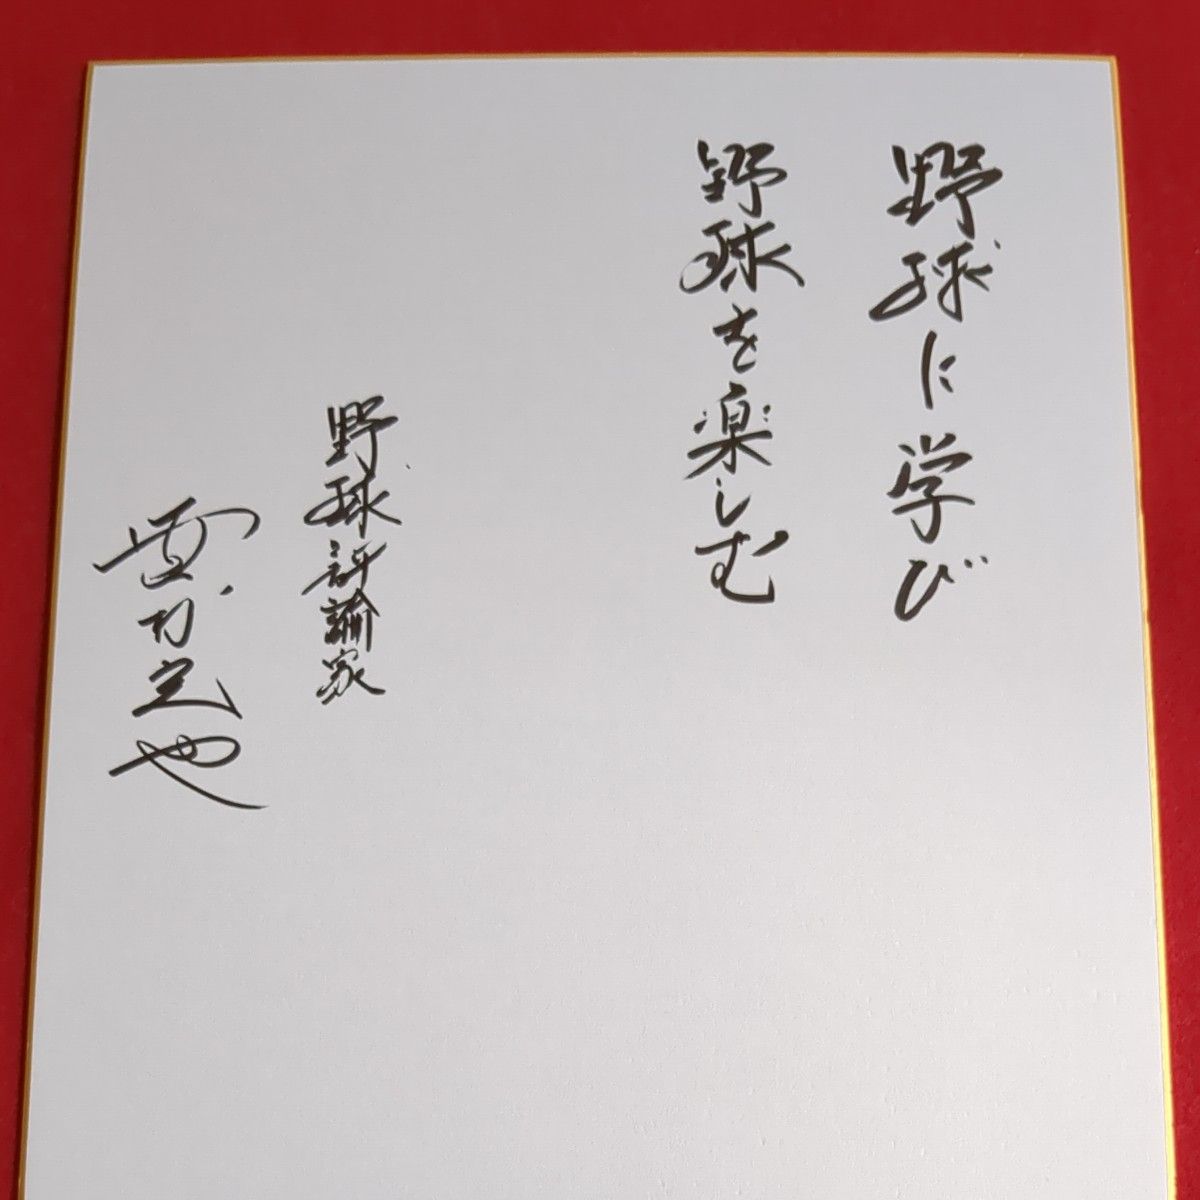 野球に学び
野球を楽しむ
野球評論家